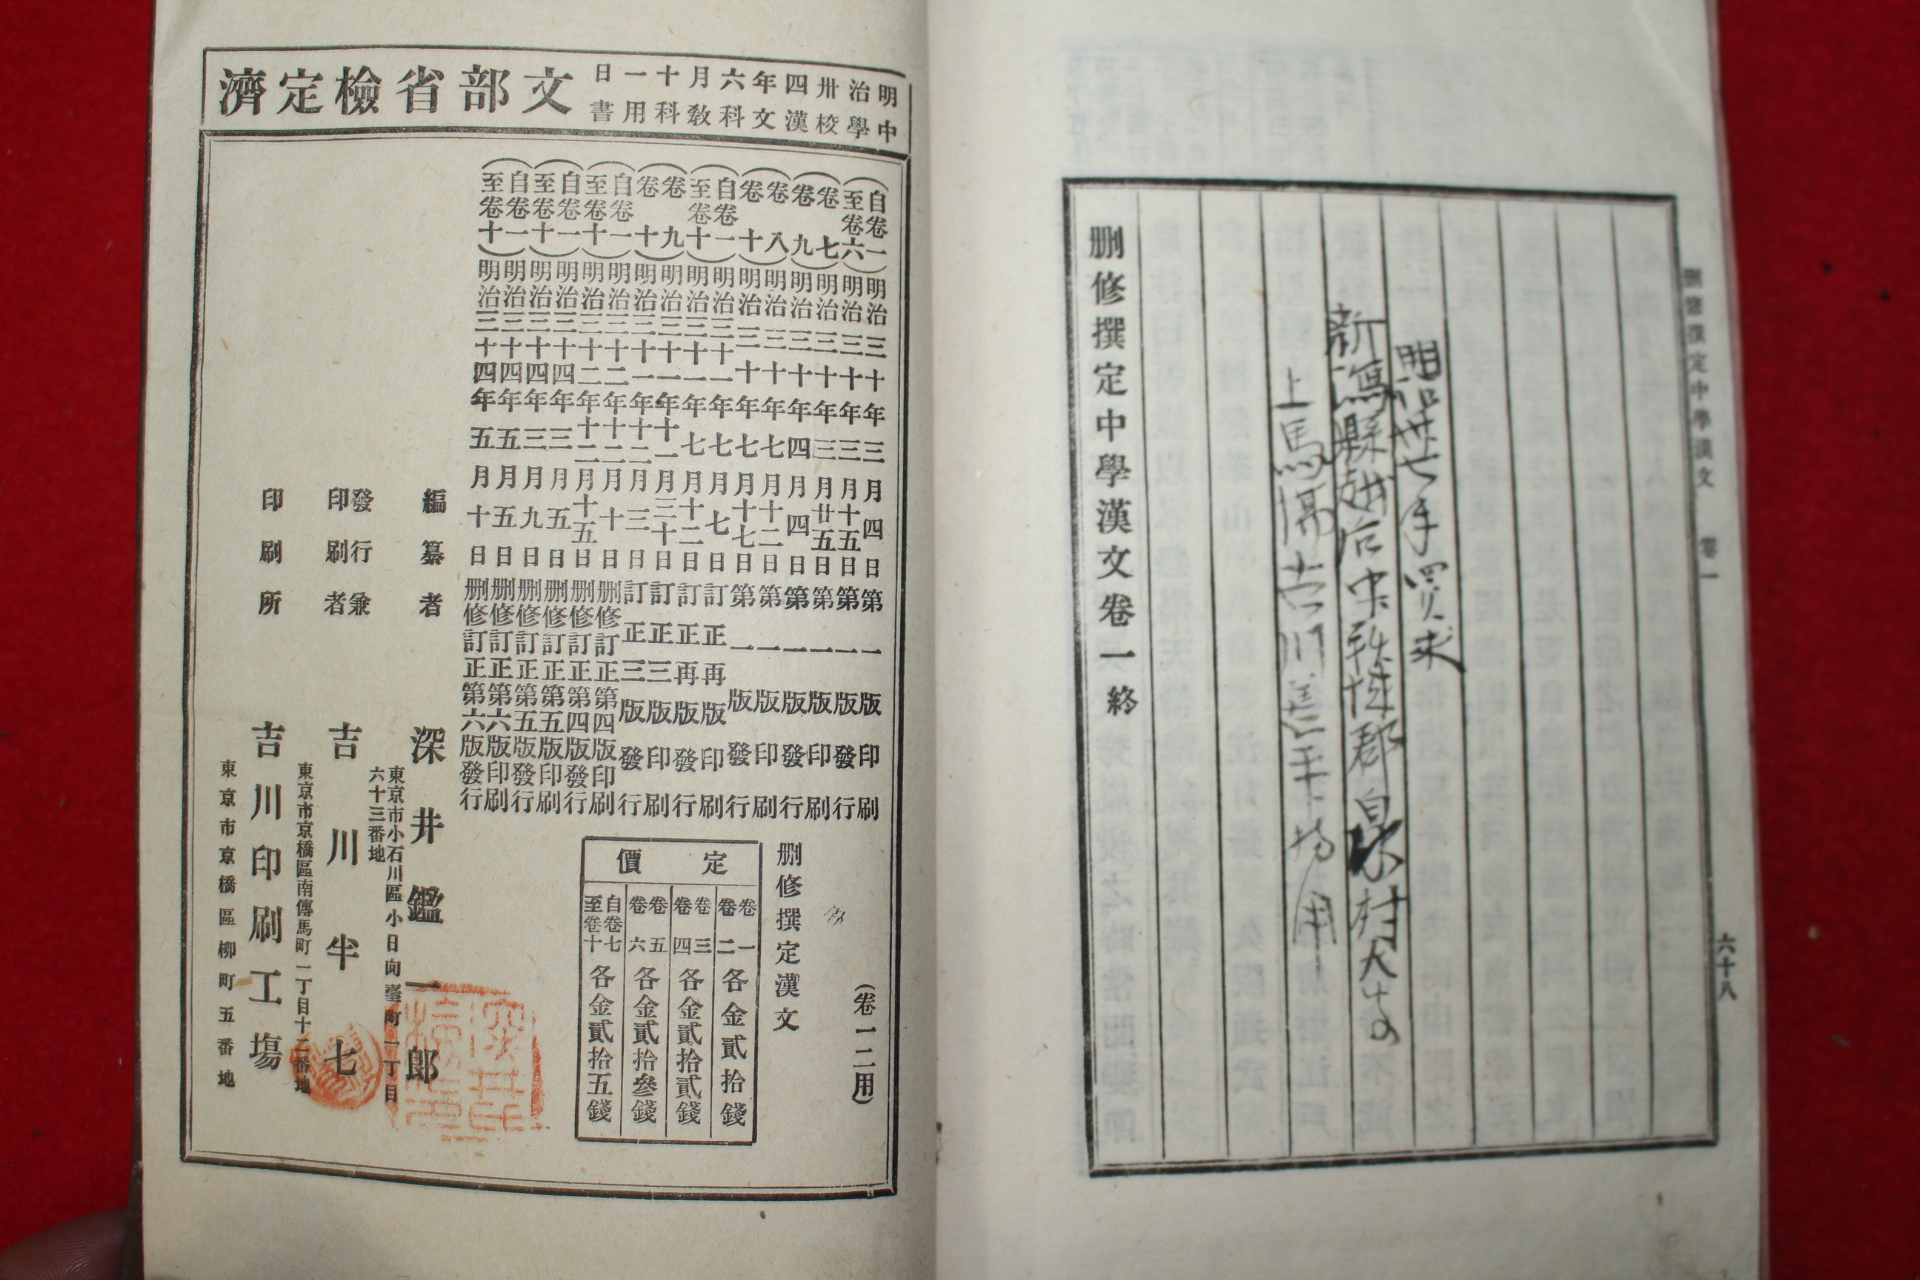 刪修撰定中學漢文 卷一
六十八
明治卅七年買求
新潟縣越后中頸城郡
村大字
刪修撰定中學漢文卷一終
明治卅四年六月十一日
中學校漢文科教科用書
文部省檢定濟
(自卷一至卷六)明治三十年三月四日第一版印刷
明治三十年三月十五日第一版發行
(卷七)明治三十年三月廿五日第一版印刷
(卷九)明治三十年四月四日第一版發行
(卷八)明治三十年七月十二日第一版印刷
(卷十)明治三十年七月十七日第一版發行
(自卷一至卷十)明治三十一年七月七日訂正再版印刷
明治三十一年七月十二日訂正再版發行
(卷九)明治三十一年十一月三十日訂正三版印刷
(卷十)明治三十一年十二月三日訂正三版發行
(自卷一至卷十)明治三十二年十二月十日刪修訂正第四版印刷
明治三十二年十二月十五日刪修訂正第四版發行
(自卷一至卷十)明治三十四年三月五日刪修訂正第五版印刷
明治三十四年三月九日刪修訂正第五版發行
(自卷一至卷十)明治三十四年五月五日刪修訂正第六版印刷
明治三十四年五月十日刪修訂正第六版發行
(卷一二用)
刪修撰定漢文
定價
卷一 卷二 各金貳拾錢
卷三 卷四 各金貳拾貳錢
卷五 卷六 各金貳拾參錢
自卷七至卷十 各金貳拾五錢
編纂者 深井鑑一郎
東京市小石川區小日向臺町一丁目
六十三番地
發行兼印刷者 吉川半七
東京市京橋區南傳馬町一丁目十二番地
印刷所 吉川印刷工場
東京市京橋區柳町五番地